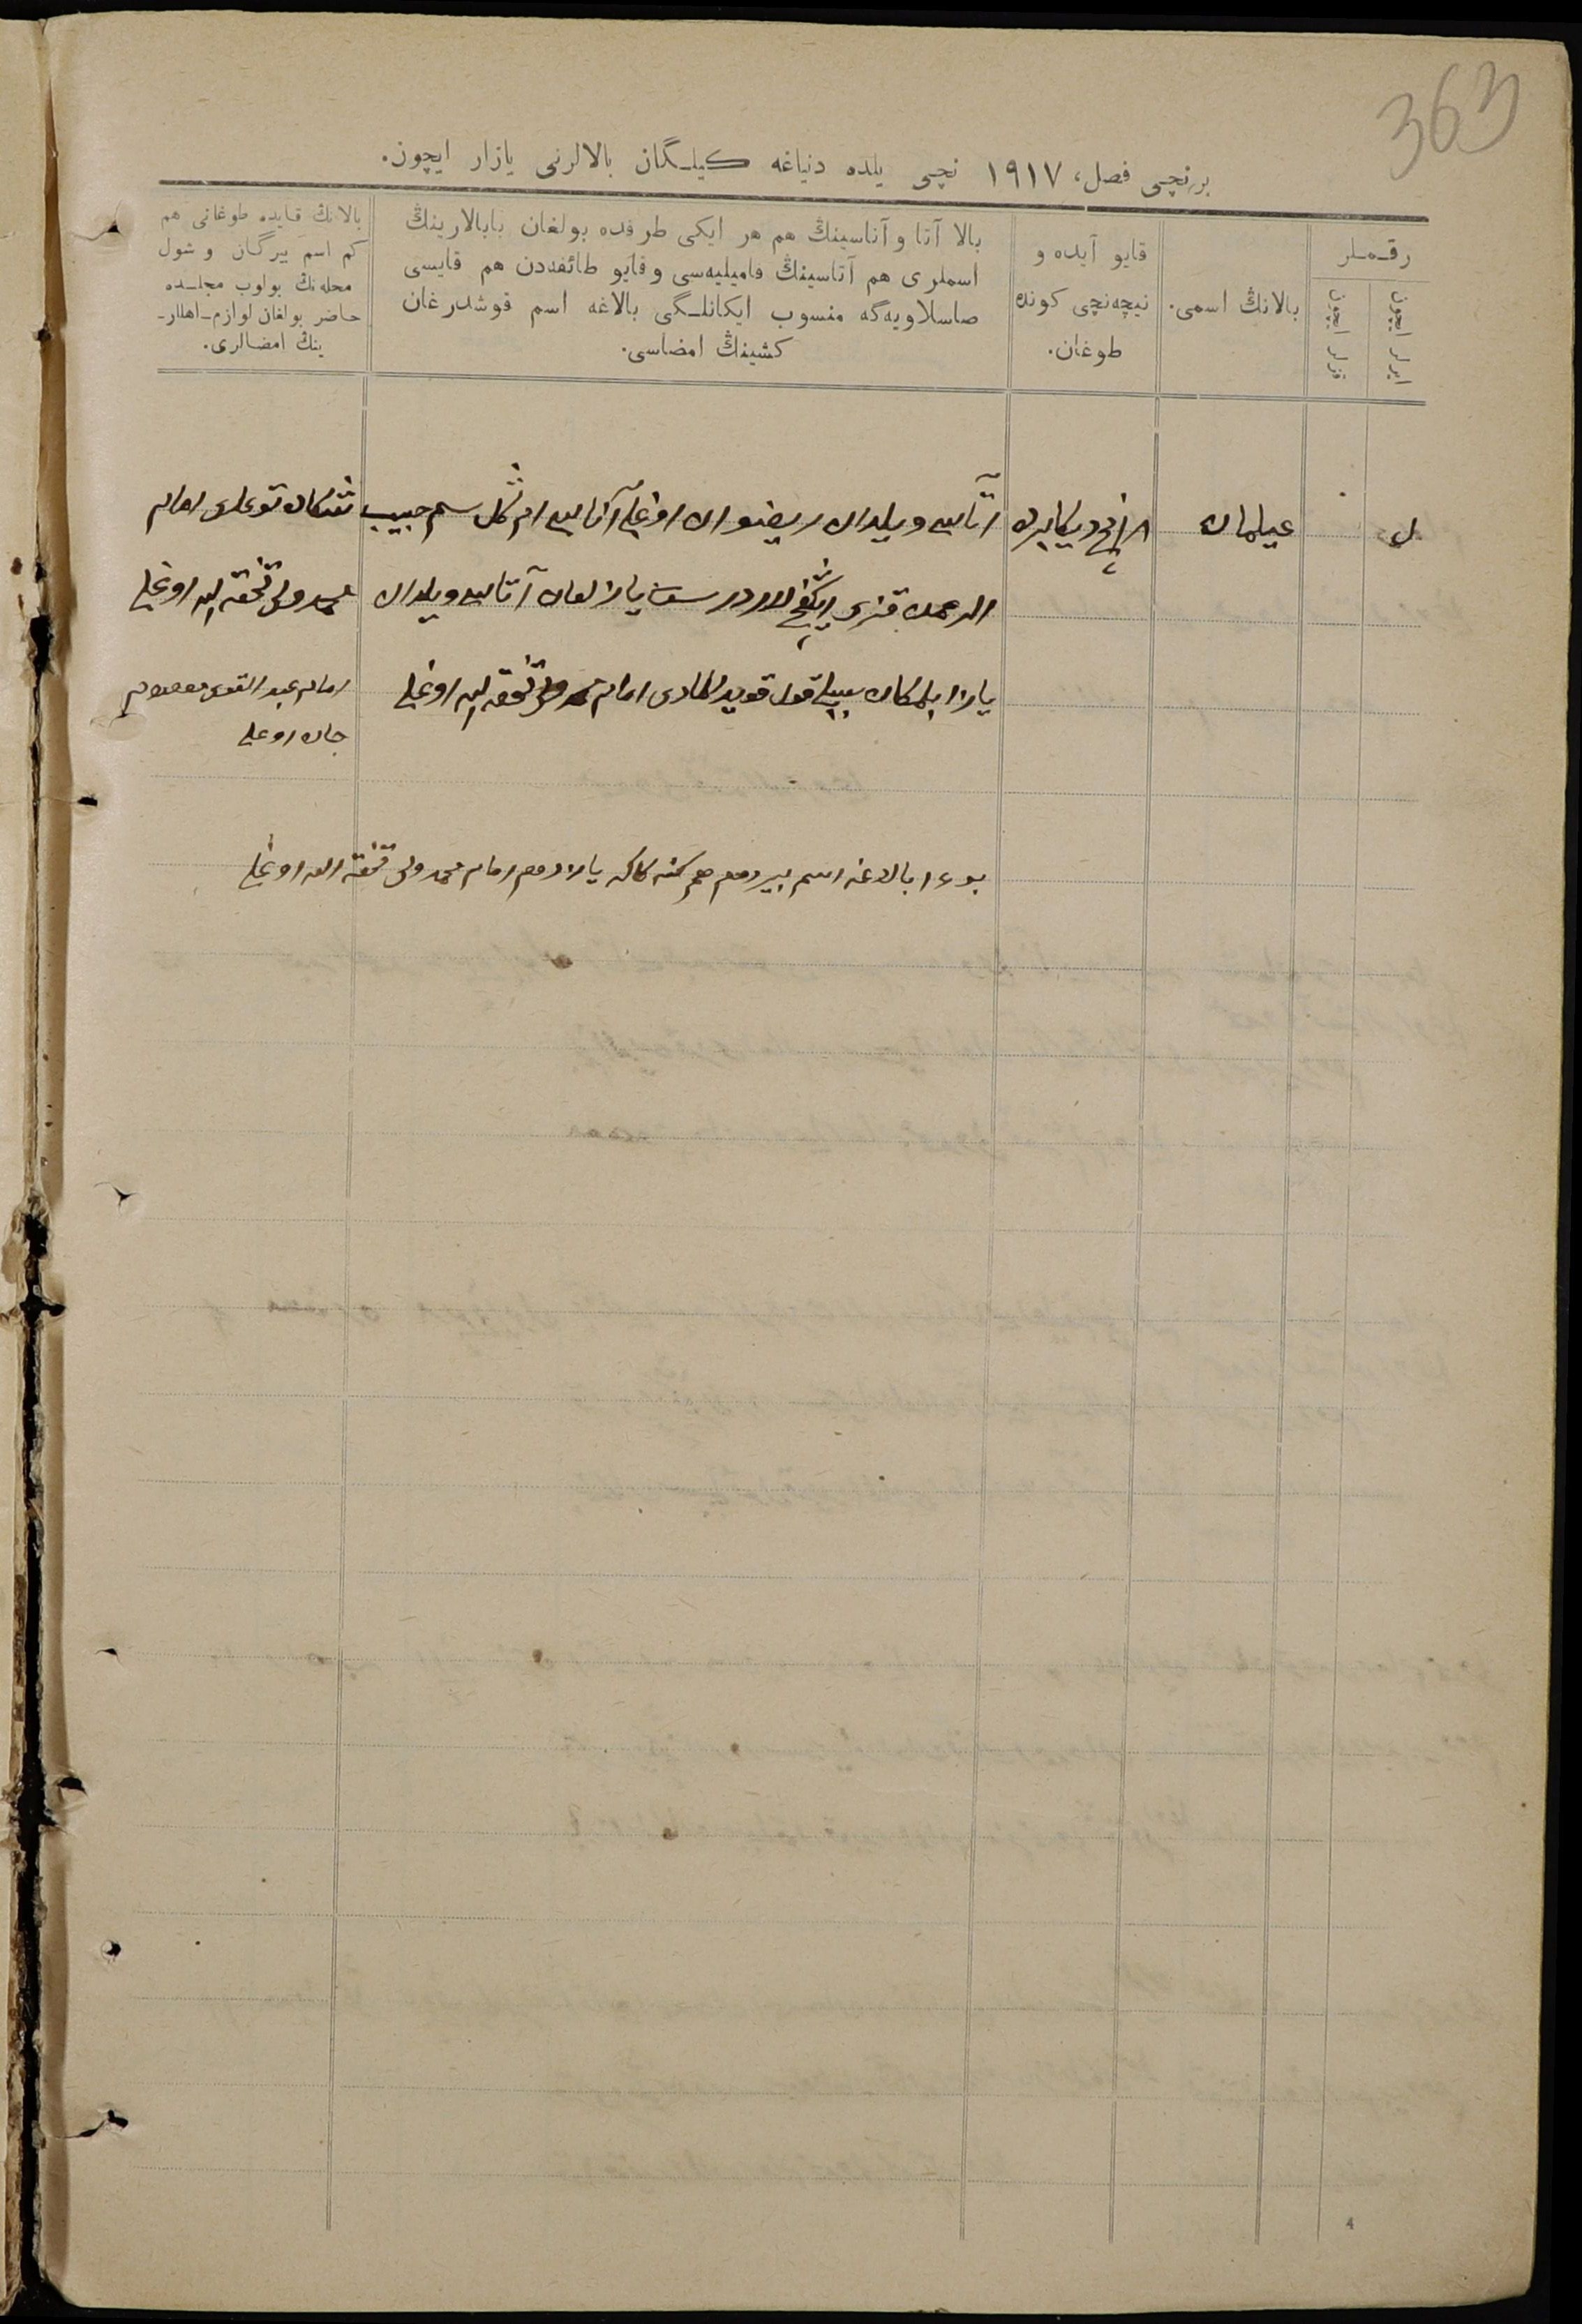 363
برنچی فصل، ١٩١٧ نچی یلده دنیاغه کیلـگان بالالرنی یازار ایچون.
رقـملر
ایرلر ایچون
قزلر ایچون
بالانڭ اسمی.
قایو آیده و
نیچه‌نچی کونده
طوغان.
بالا آتا و آناسینڭ هم هر ایکی طرفده بولغان بابالارینڭ
اسملری هم آتاسینڭ فامیلیه‌سی و قایو طائفه‌دن هم قایسی
صاسلاویه‌گه منسوب ایکانلـگی بالاغه اسم قوشدرغان
کشینڭ امضاسی.
بالانڭ قایده طوغانی هم
کم اسم بیرگان و شول
محله‌نڭ بولوب مجلـسده
حاضر بولغان لوازم-اهللر-
ینڭ امضالری.
آتاسی ویلدان ریضوان اوغلی آناسی گل حبیب
قزی یازالغان آتاسی ویلدان
یازا بلمکان سببلی قول قویدلمادی امام تحفة الله اوغلی
امام
محمد ولی تحفة الله اوغلی
امام عبد القوی
جان اوغلی
بو بالاغه اسم بیردم هم یازدم امام محمد ولی تحفة الله اوغلی
4